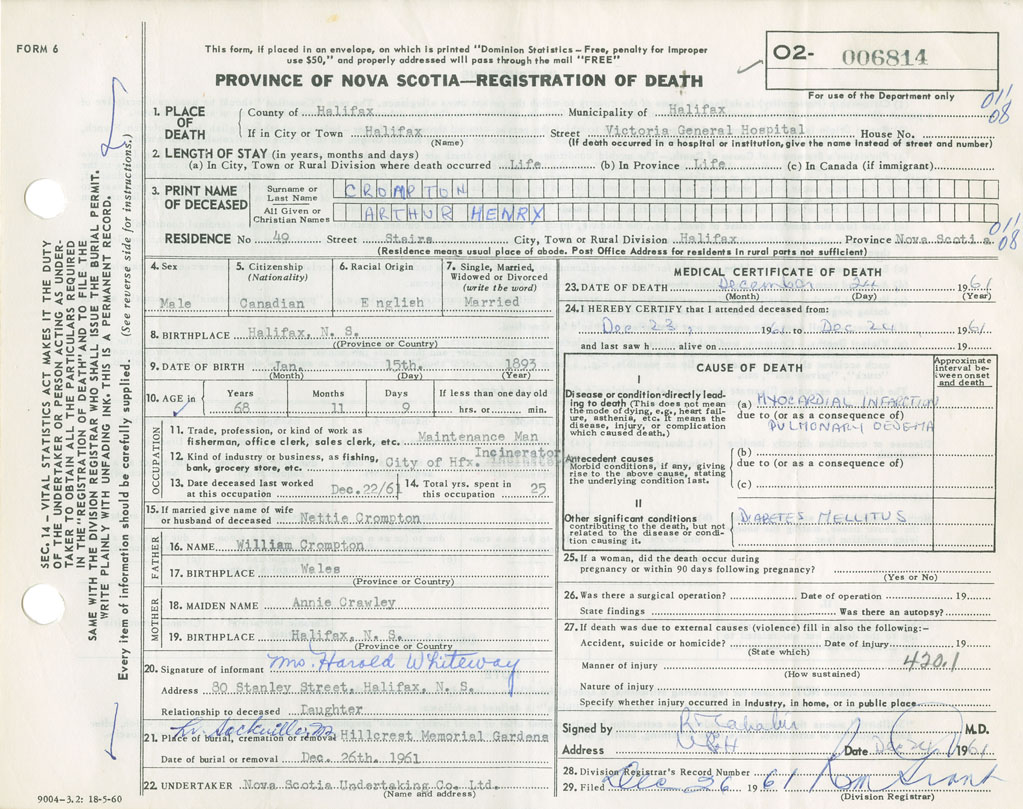 FORM 6
This form, if placed in an envelope, on which is printed "Dominion Statistics – Free, penalty for improper
use $50," and properly addressed will pass through the mail "FREE"
PROVINCE OF NOVA SCOTIA—REGISTRATION OF DEATH
02- 006814
For use of the Department only
011
08
1. PLACE OF DEATH
County of Halifax Municipality of Halifax
If in City or Town Halifax Street Victoria General Hospital House No.
(Name) (If death occurred in a hospital or institution, give the name instead of street and number)
2. LENGTH OF STAY (in years, months and days)
(a) In City, Town or Rural Division where death occurred Life (b) In Province Life (c) In Canada (if immigrant)
3. PRINT NAME OF DECEASED
Surname or Last Name CROMPTON
All Given or Christian Names ARTHUR HENRY
011
08
RESIDENCE No 49 Street Stairs City, Town or Rural Division Halifax Province Nova Scotia
(Residence means usual place of abode. Post Office Address for residents in rural parts not sufficient)
4. Sex
Male
5. Citizenship
(Nationality)
Canadian
6. Racial Origin
E nglish
7. Single, Married,
Widowed or Divorced
(write the word)
Married
8. BIRTHPLACE Halifax, N. S.
(Province or Country)
9. DATE OF BIRTH Jan. 15th. 1893
(Month) (Day) (Year)
10. AGE in
Years Months Days If less than one day old
68 11 9 hrs. or min.
OCCUPATION
11. Trade, profession, or kind of work as
fisherman, office clerk, sales clerk, etc. Maintenance Man
12. Kind of industry or business, as fishing,
bank, grocery store, etc. City of Hfx. Incinerator
13. Date deceased last worked
at this occupation Dec.22/61
14. Total yrs. spent in
this occupation 25
15. If married give name of wife
or husband of deceased Nettie Crompton
FATHER
16. NAME William Crompton
17. BIRTHPLACE Wales
(Province or Country)
MOTHER
18. MAIDEN NAME Annie Crawley
19. BIRTHPLACE Halifax, N. S.
(Province or Country)
20. Signature of informant Mrs. Harold Whiteway
Address 80 Stanley Street, Halifax, N. S.
Relationship to deceased Daughter
Lr. Sackville
21. Place of burial, cremation or removal Hillcrest Memorial Gardens
Date of burial or removal Dec. 26th. 1961
22. UNDERTAKER Nova Scotia Undertaking Co. Ltd.
(Name and address)
MEDICAL CERTIFICATE OF DEATH
23. DATE OF DEATH December 24 1961
(Month) (Day) (Year)
24. I HEREBY CERTIFY that I attended deceased from:
Dec 23, 1961 to Dec 24 1961
and last saw h alive on 19
CAUSE OF DEATH
Approximate
interval be-
tween onset
and death
I
Disease or condition directly lead-
ing to death (This does not mean
the mode of dying, e.g., heart fail-
ure, asthenia, etc. It means the
disease, injury, or complication
which caused death.)
(a) MYOCARDIAL INFARCTION
due to (or as a consequence of)
PULMONARY OEDEMA
Antecedent causes
Morbid conditions, if any, giving
rise to the above cause, stating
the underlying condition last.
(b)
due to (or as a consequence of)
(c)
II
Other significant conditions
contributing to the death, but not
related to the disease or condi-
tion causing it.
DIABETES MELLITUS
25. If a woman, did the death occur during
pregnancy or within 90 days following pregnancy?
(Yes or No)
26. Was there a surgical operation? Date of operation 19
State findings Was there an autopsy?
27. If death was due to external causes (violence) fill in also the following:–
Accident, suicide or homicide? Date of injury 19
(State which)
420.1
Manner of injury
(How sustained)
Nature of injury
Specify whether injury occurred in industry, in home, or in public place
Signed by M.D.
Address VGH Date Dec 24 1961
28. Division Registrar's Record Number
29. Filed Dec 26 1961 RM Grant
(Division Registrar)
SEC. 14 – VITAL STATISTICS ACT MAKES IT THE DUTY
OF THE UNDERTAKER OR PERSON ACTING AS UNDER-
TAKER TO OBTAIN ALL THE PARTICULARS REQUIRED
IN THE "REGISTRATION OF DEATH" AND TO FILE THE
SAME WITH THE DIVISION REGISTRAR WHO SHALL ISSUE THE BURIAL PERMIT.
WRITE PLAINLY WITH UNFADING INK. THIS IS A PERMANENT RECORD.
Every item of information should be carefully supplied. (See reverse side for instructions.)
9004-3.2: 18-5-60